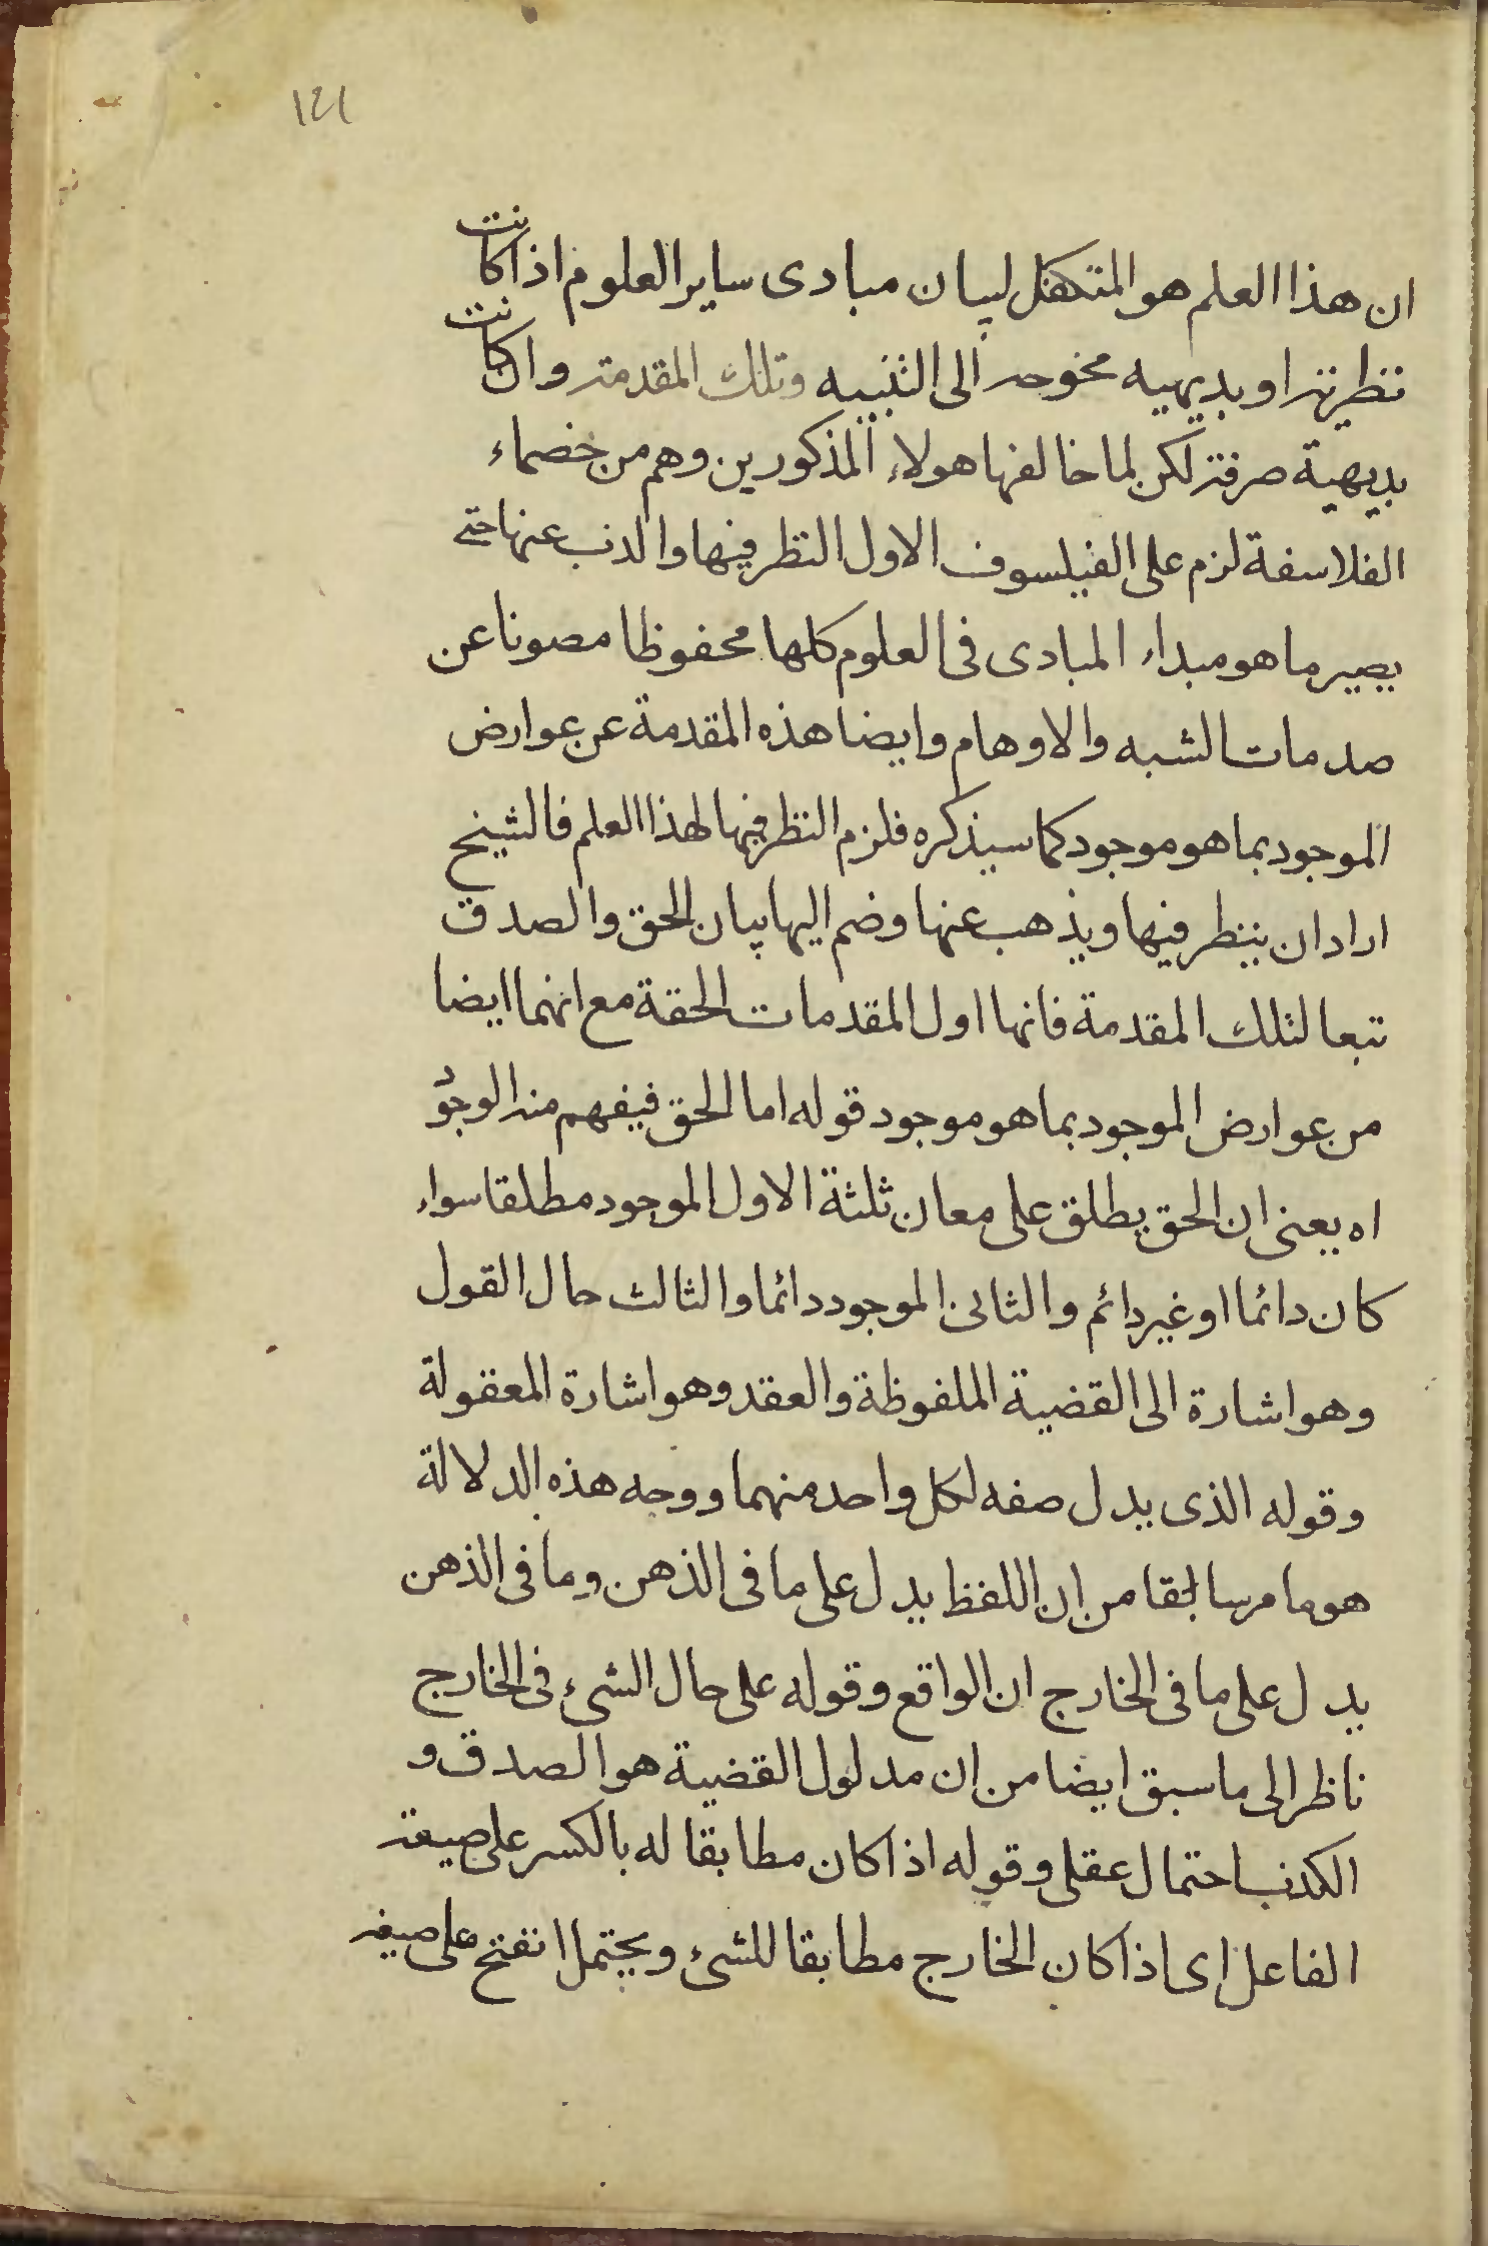 ١٤١
ان هذا العلم هو المتكفل لبيان مبادى ساير العلوم اذا كانت
نظرية او بديهيه مخوجه الى التنبيه وتلك المقدمة وان كانت
بديهية صرفة لكن لما خالفها هولاء المذكورين وهم من خصماء
الفلاسفة لزم على الفيلسوف الاول النظر فيها والذب عنها حتى
يصير ما هو مبداء المبادى فى العلوم كلها محفوظا مصونا عن
صدمات الشبه والاوهام وايضا هذه المقدمة عن عوارض
الموجود بما هو موجود كما سيذكره فلزم النظر فيها لهذا العلم فالشيخ
اراد ان ينظر فيها ويذهب عنها وضم اليها بيان الحق والصدق
تبعا لتلك المقدمة فانها اول المقدمات الحقة مع انهما ايضا
من عوارض الموجود بما هو موجود قوله اما الحق فيفهم منه الوجود
اه يعنى ان الحق يطلق على معان ثلثة الاول الموجود مطلقا سواء
كان دائما او غير دائم والثانى الموجود دائما والثالث حال القول
وهو اشارة الى القضية الملفوظة والعقد وهو اشارة المعقولة
وقوله الذى يدل صفه لكل واحد منهما ووجه هذه الدلالة
هو ما مر سابقا من ان اللفظ يدل على ما فى الذهن وما فى الذهن
يدل على ما فى الخارج ان الواقع وقوله على حال الشىء فى الخارج
ناظر الى ما سبق ايضا من ان مدلول القضية هو الصدق و
الكذب احتمال عقلى وقوله اذا كان مطابقا له بالكسر على صيغة
الفاعل اى اذا كان الخارج مطابقا للشىء ويحتمل الفتح على صيغه